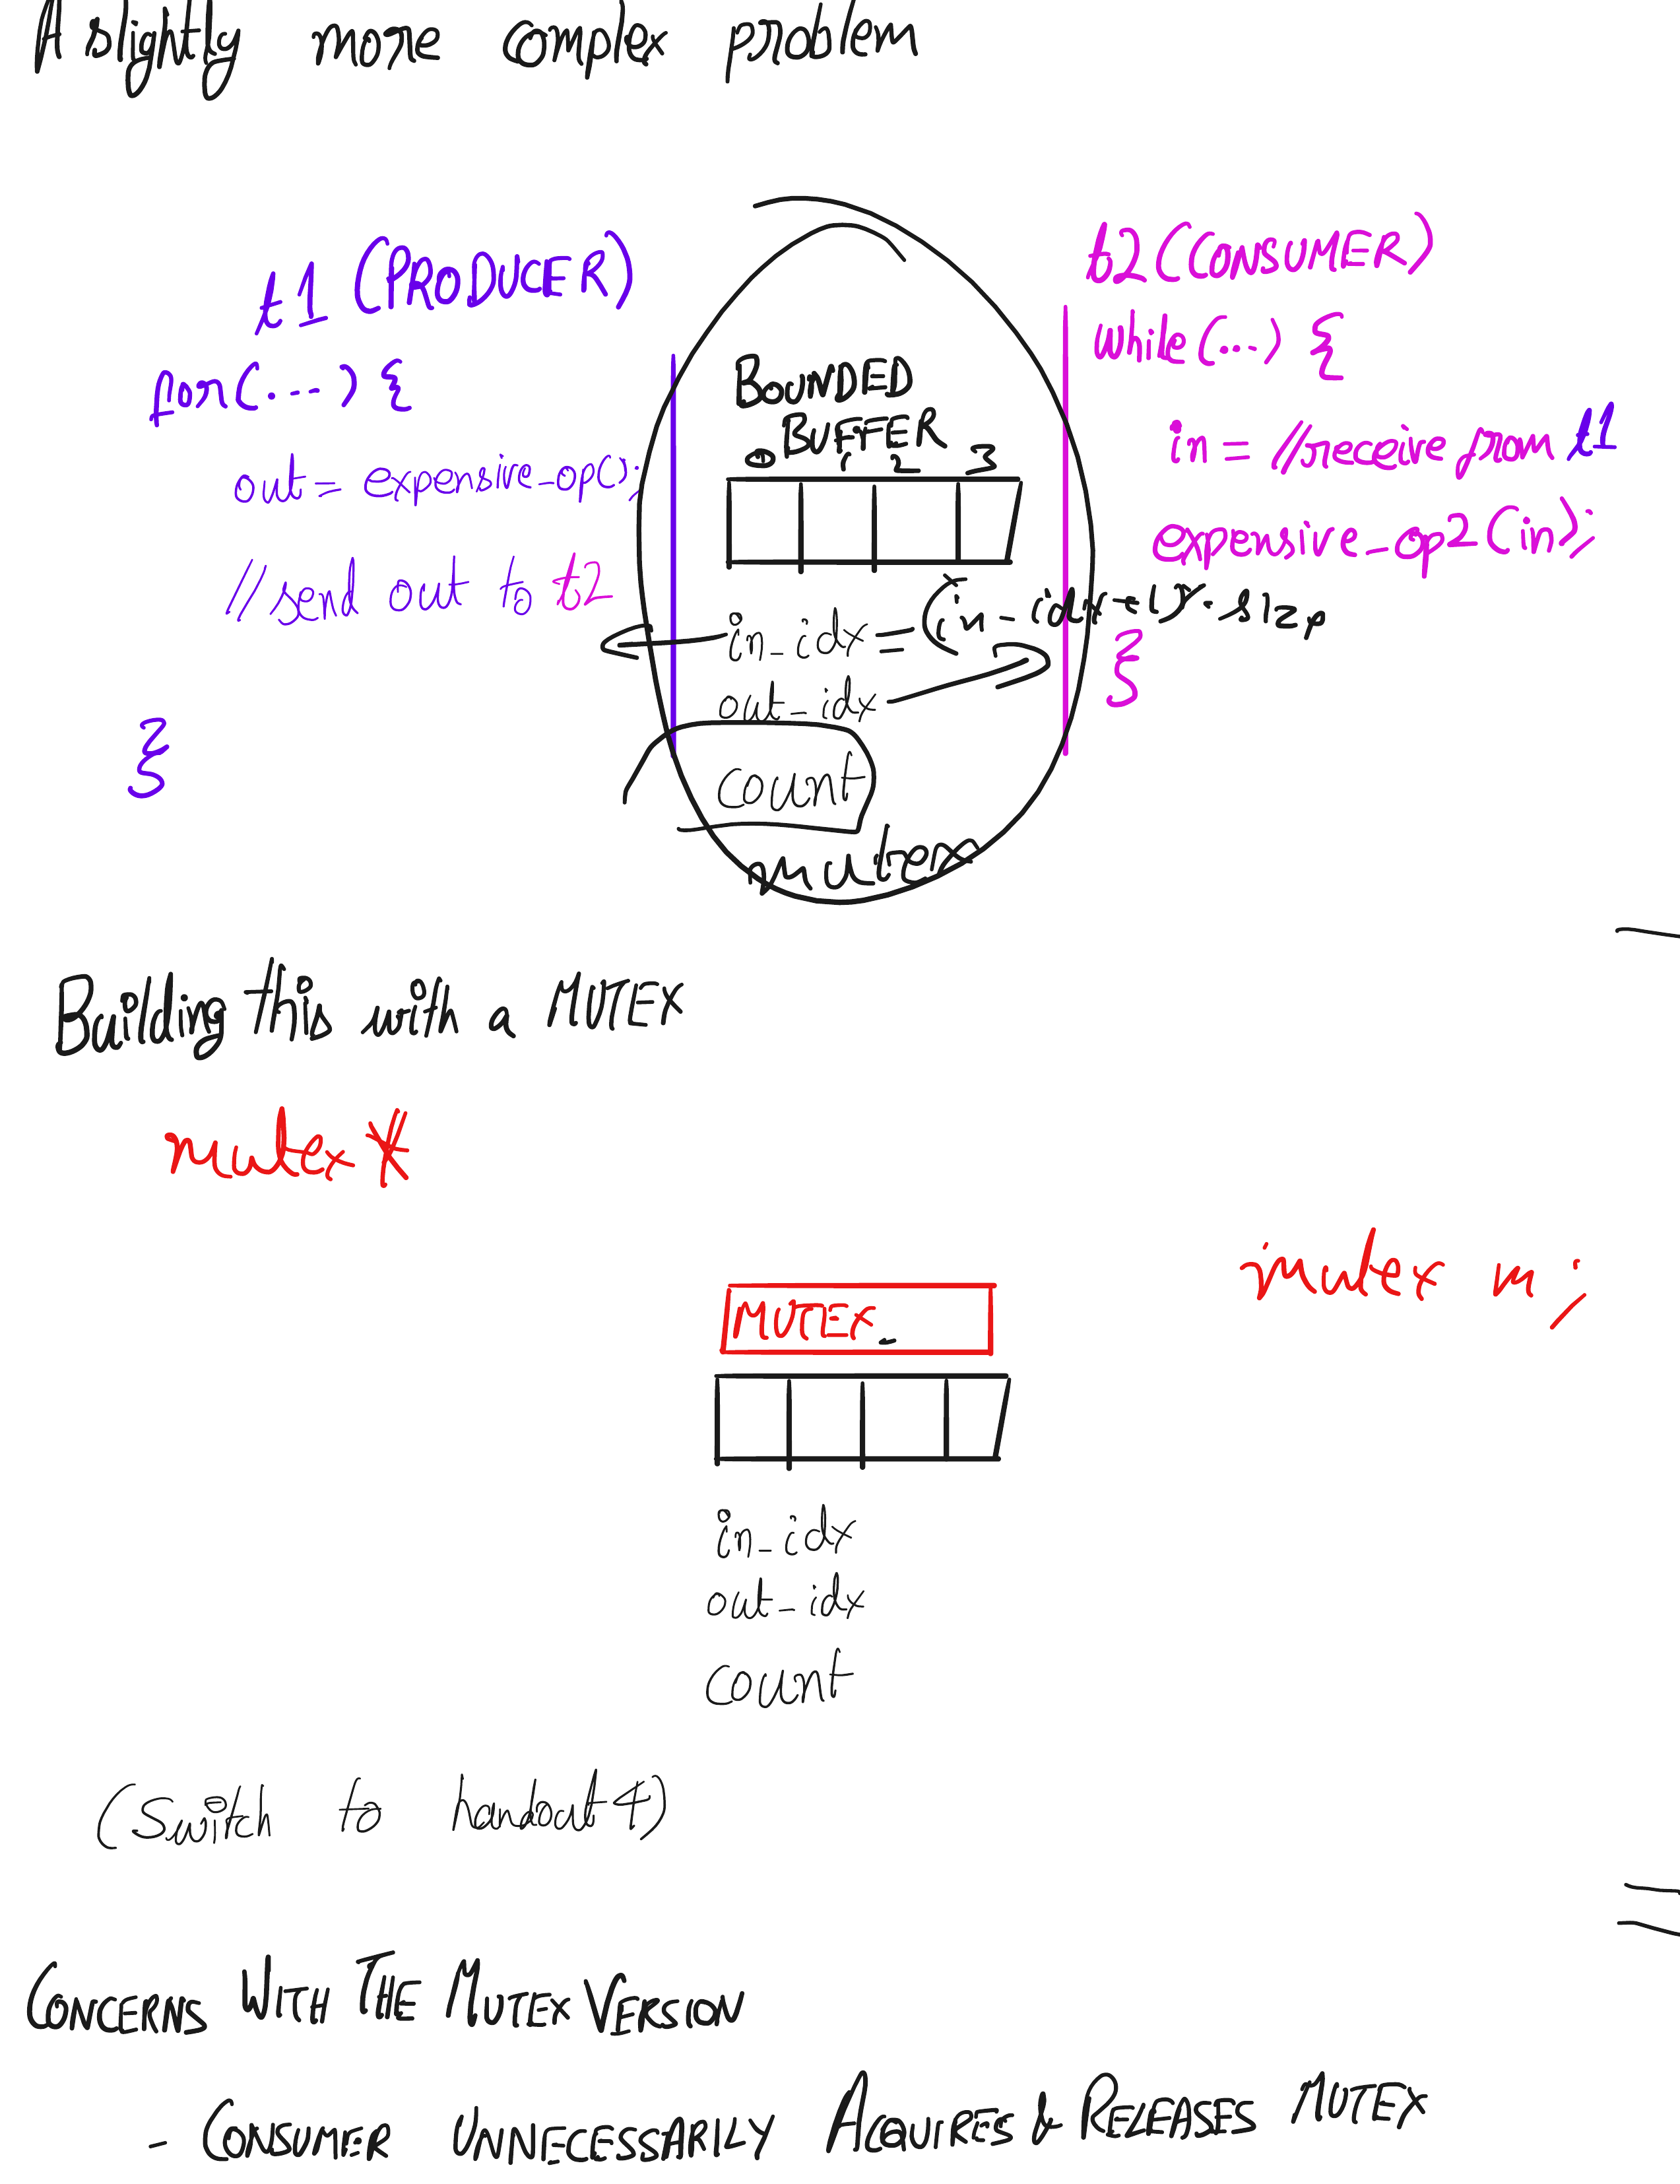 A slightly more complex problem
t1 (PRODUCER)
for(...) {
out = expensive_op();
//send out to t2
}
BOUNDED
BUFFER
0 1 2 3
in_idx = (in-idx+1)%.size
out_idx
count
mutex
t2 (CONSUMER)
while(...) {
in = //receive from t1
expensive_op2(in);
}
Building this with a MUTEX
mutex *
mutex m;
MUTEX
in_idx
out_idx
count
(Switch to handout 4)
CONCERNS WITH THE MUTEX VERSION
- CONSUMER UNNECESSARILY ACQUIRES & RELEASES MUTEX